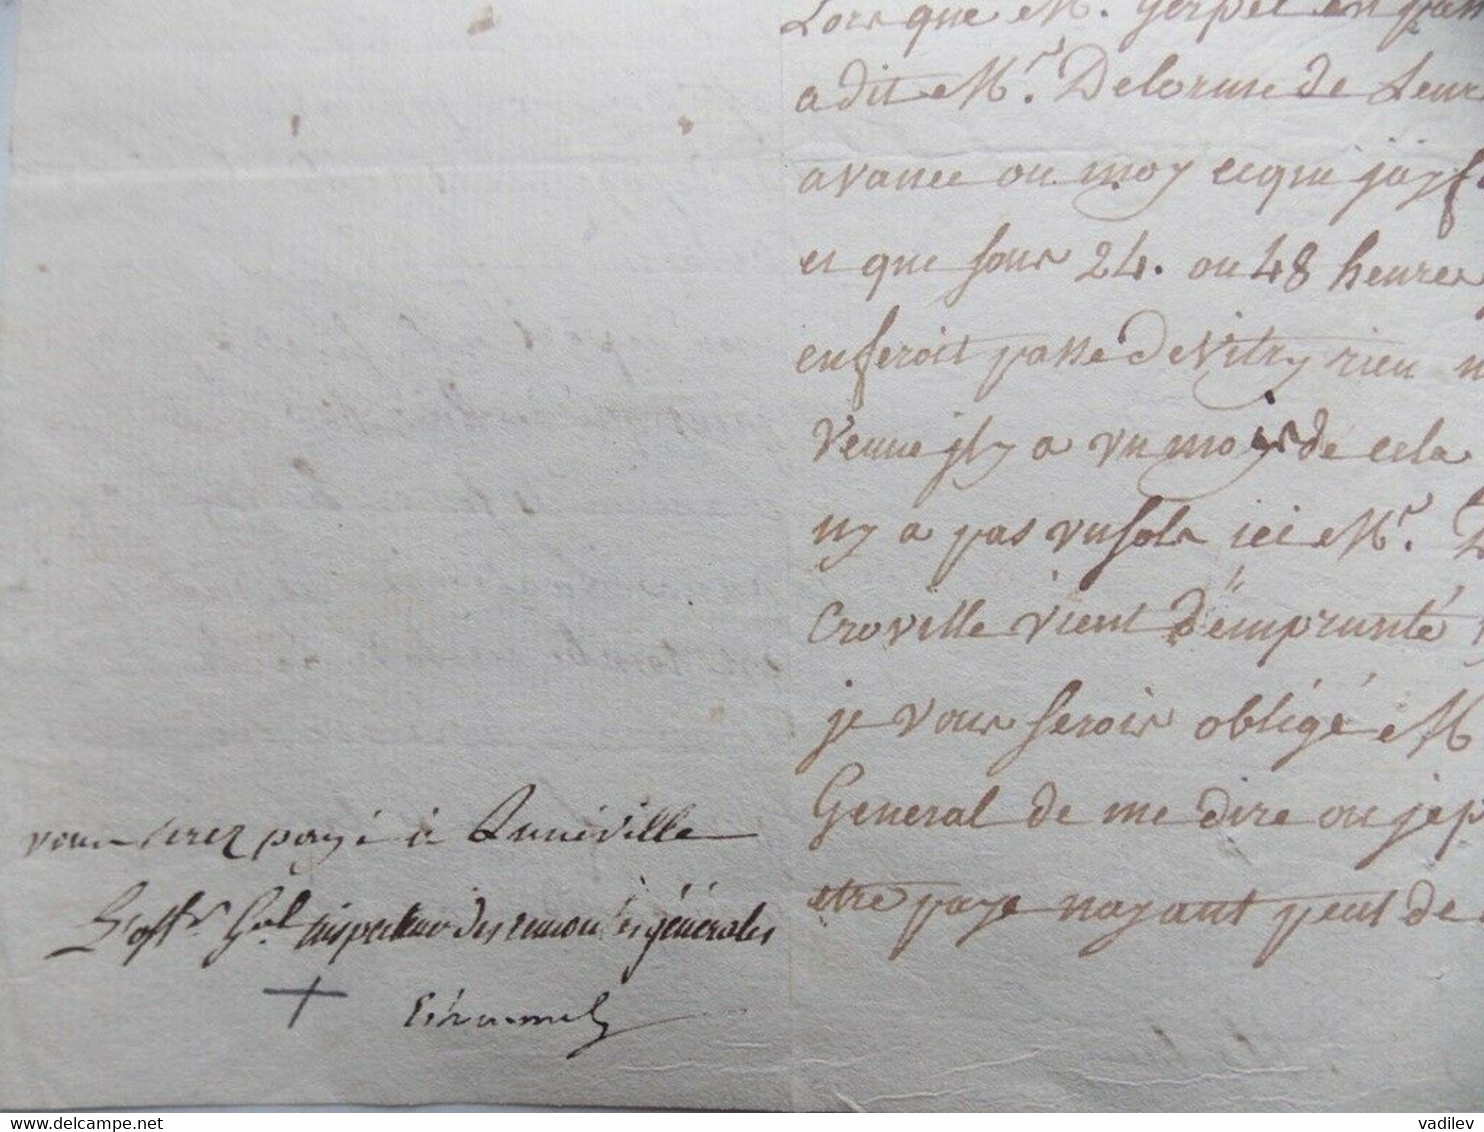 Lorsque M. Gerpel en pass
a dit M.r Delorme de Leur
avance ou moy ecque jay f
et que sous 24. ou 48 heures
en seroit passé de Vitry rien n
venue jl y a vn moys de cela
ny a pas vn sols ici M.r
Croville vient d'emprunté
je vous serois obligé M
General de me dire ou je p
etre paye nayant peut de
vous serez payé à Lunéville
L'off.r G.al inspecteur des remontes générales
delcampe.net
vadilev